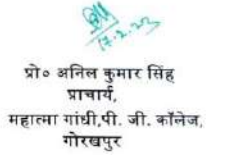 17.2.23
प्रो० अनिल कुमार सिंह
प्राचार्य,
महात्मा गांधी,पी. जी. कॉलेज,
गोरखपुर